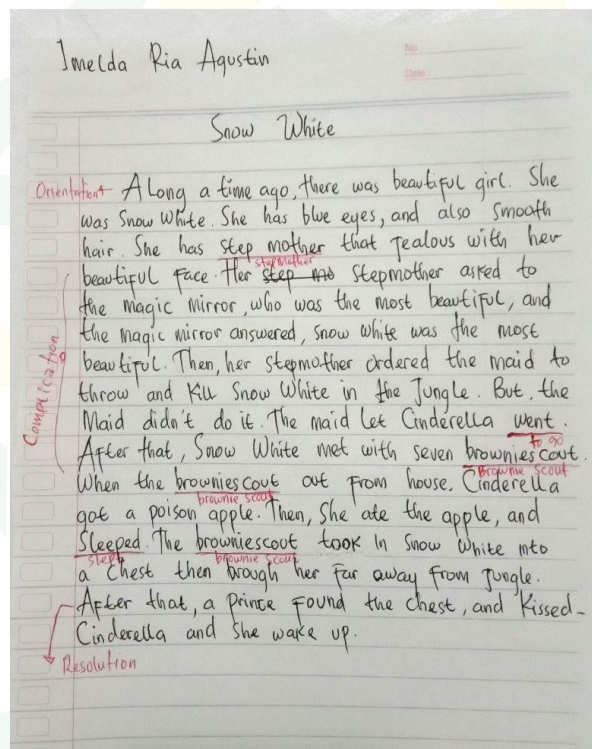 Imelda Ria Agustin
No
Date:
Snow White
Orientation ALong a time ago, there was beautiful girl. She
was Snow White. She has blue eyes, and also smooth
hair. She has step mother that Jealous with her
stepmother
beautiful face. Her step mo Stepmother asked to
the magic mirror, who was the most beautiful, and
the magic mirror answered, snow white was the most
beautiful. Then, her stepmother ordered the maid to
throw and kill Snow White in the Jungle. But, the
Maid didn't do it. The maid let Cinderella went.
to go
After that, Snow White met with seven browniescout.
Brownie Scout
When the browniescout out from house, Cinderella
brownie scout
got a poison apple. Then, She ate the apple, and
Sleeped. The browniescout took in Snow White into
slept brownie scout
a chest then brough her far away from Jungle.
After that, a prince found the chest, and kissed-
Cinderella and she wake up.
Complication
Resolution